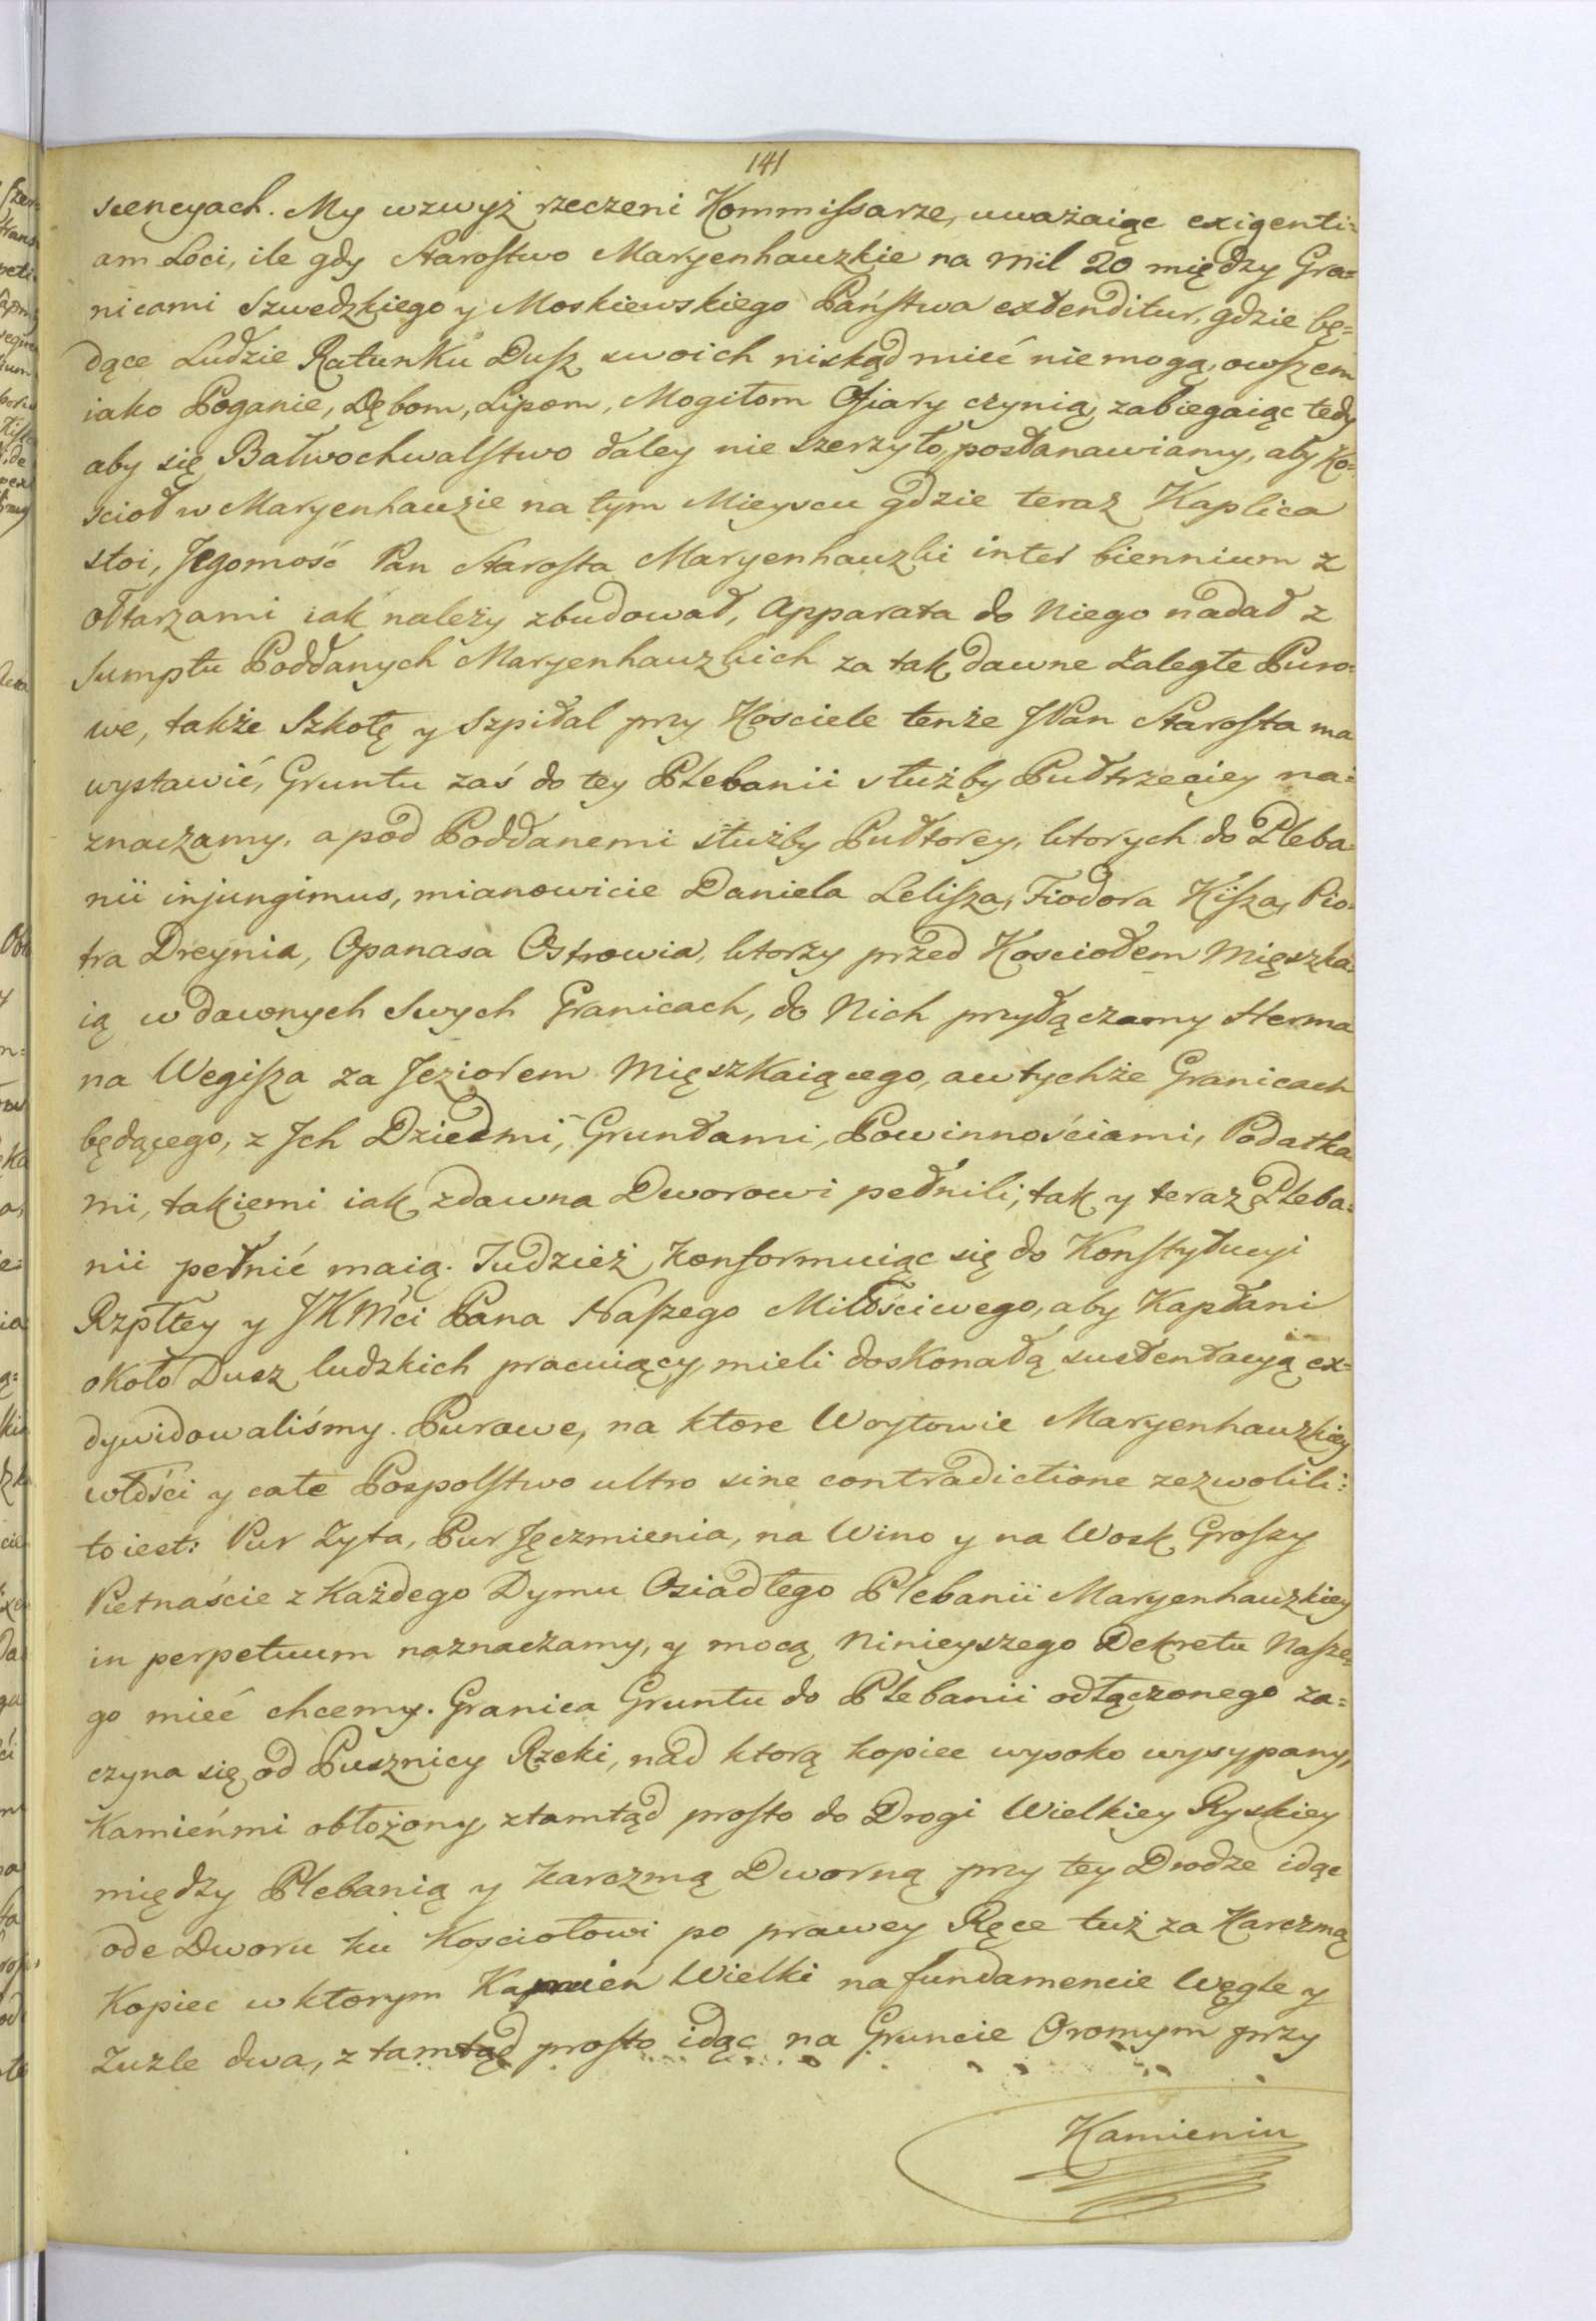 141
scencyach. My wzwyż rzeczeni Kommiſsarze, uważaiąc exigenti=
am Loci, ile gdy Staroſtwo Maryenhauzkie na mil 20 między Gra=
nicami Szwedzkiego y Moskiewskiego Pańſtwa extenditur, gdzie bę=
dące Ludzie Ratunku Duſz swoich niskąd mieć nie mogą, owſzem
iako Poganie, Dębom, Lipom, Mogiłom Ofiary czynią, zabiegaiąc tedy
aby się Bałwochwalſtwo daley nie szerzyło, postanawiamy, aby Ko=
scioł w Maryenhauzie na tym Mieyscu gdzie teraz Kaplica
stoi, Jegomość Pan Staroſta Maryenhauzki inter biennium z
ołtarzami iak należy zbudował, Apparata do Niego nadał z
Sumptu Poddanych Maryenhauzkich za tak dawne zaległe Puro=
we, także Szkołę y Szpital przy Kosciele tenże JPan Staroſta ma
wystawić, Gruntu zaś do tey Plebanii służby Pułtrzeciey na=
znaczamy, a pod Poddanemi służby Pułtorey, ktorych do Pleba=
nii injungimus, mianowicie Daniela Leliſza, Fiodora Kiſza, Pio=
tra Dreynia, Opanasa Ostrowia, ktorzy przed Kosciołem Mięszka=
ią w dawnych Swych Granicach, do Nich przyłączamy Herma
na Wegiſza za Jeziorem Mięszkaiącego, a w tychże Granicach
będącego, z Jch Dziećmi, Gruntami, Powinnościami, Podatka
mi, takiemi iak zdawna Dworowi pełnili, tak y teraz Pleba=
nii pełnić maią. Tudzież konformuiąc się do Konſtytucyi
Rzpltey y JKMci Pana Naſzego Miłościwego, aby Kapłani
około Dusz ludzkich pracuiący, mieli doskonałą sustentacyą ex=
dywidowaliśmy. Purowe, na ktore Woytowie Maryenhauzkiey
włości y całe Pospolſtwo ultro sine contradictione zezwolili:
to iest: Pur Żyta, Pur Jęczmienia, na Wino y na Wosk Groſzy
Pietnaście z Każdego Dymu Osiadłego Plebanii Maryenhauzkiey
in perpetuum naznaczamy, y mocą Ninieyszego Dekretu Naſze=
go mieć chcemy. Granica Gruntu do Plebanii odłączonego za=
czyna się od Pusznicy Rzeki, nad ktorą kopiec wysoko wysypany,
Kamieńmi obłożony, ztamtąd proſto do Drogi Wielkiey Ryskiey
między Plebanią y karczmą Dworną przy tey Drodze idąc
ode Dworu ku Kosciołowi po prawey Ręce tuż za Karczmą
Kopiec w ktorym Kamień Wielki na fundamencie Węgle y
Zużle dwa, z tamtąd proſto idąc na Gruncie Oromym przy
Kamieniu